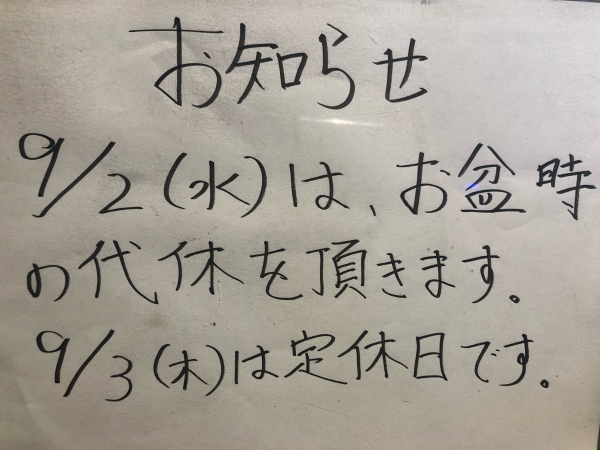 お知らせ
9/2(水)は、お盆時
の代休を頂きます。
9/3(木)は定休日です。